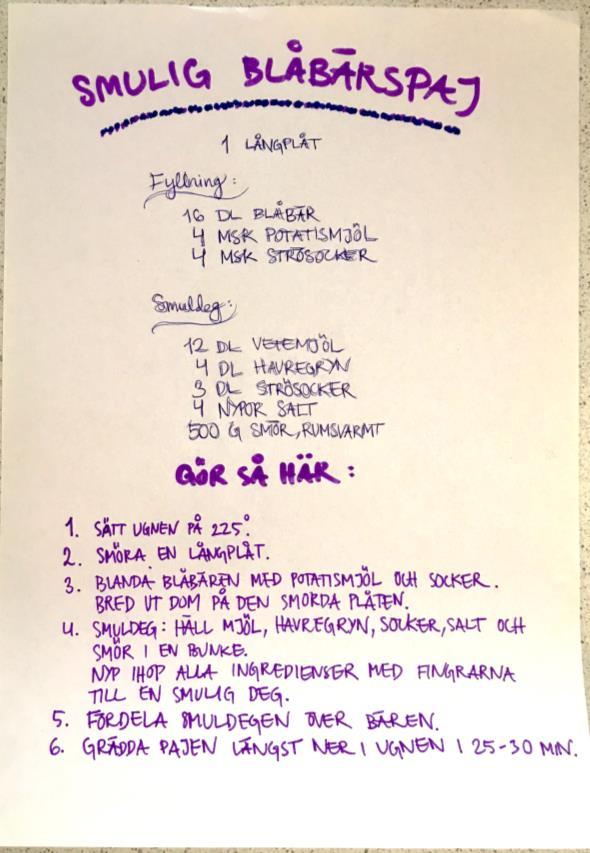 SMULIG BLÅBÄRSPAJ
1 LÅNGPLÅT
Fyllning:
16 DL BLÅBÄR
4 MSK POTATISMJÖL
4 MSK STRÖSOCKER
Smuldeg:
12 DL VETEMJÖL
4 DL HAVREGRYN
3 DL STRÖSOCKER
4 NYPOR SALT
500 G SMÖR, RUMSVARMT
GÖR SÅ HÄR:
1. SÄTT UGNEN PÅ 225°.
2. SMÖRA EN LÅNGPLÅT.
3. BLANDA BLÅBÄREN MED POTATISMJÖL OCH SOCKER.
BRED UT DOM PÅ DEN SMORDA PLÅTEN.
4. SMULDEG: HÄLL MJÖL, HAVREGRYN, SOCKER, SALT OCH
SMÖR I EN BUNKE.
NYP IHOP ALLA INGREDIENSER MED FINGRARNA
TILL EN SMULIG DEG.
5. FÖRDELA SMULDEGEN ÖVER BÄREN.
6. GRÄDDA PAJEN LÄNGST NER I UGNEN I 25-30 MIN.